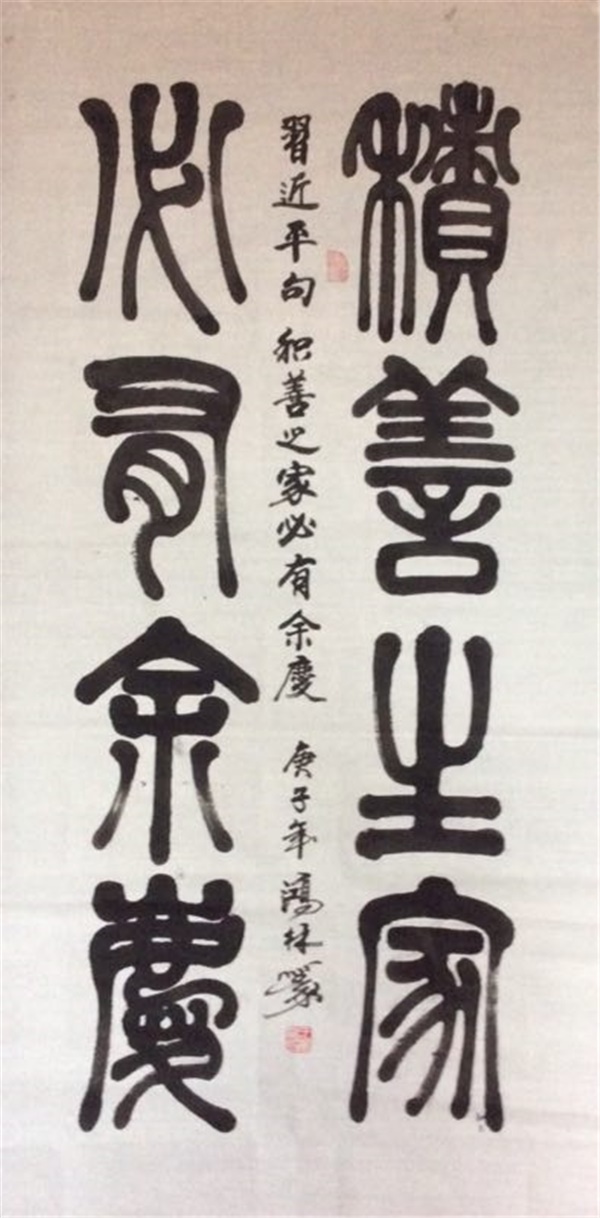 積善之家
習近平句 积善之家必有余慶 庚子年 鴻林篆
必有余慶